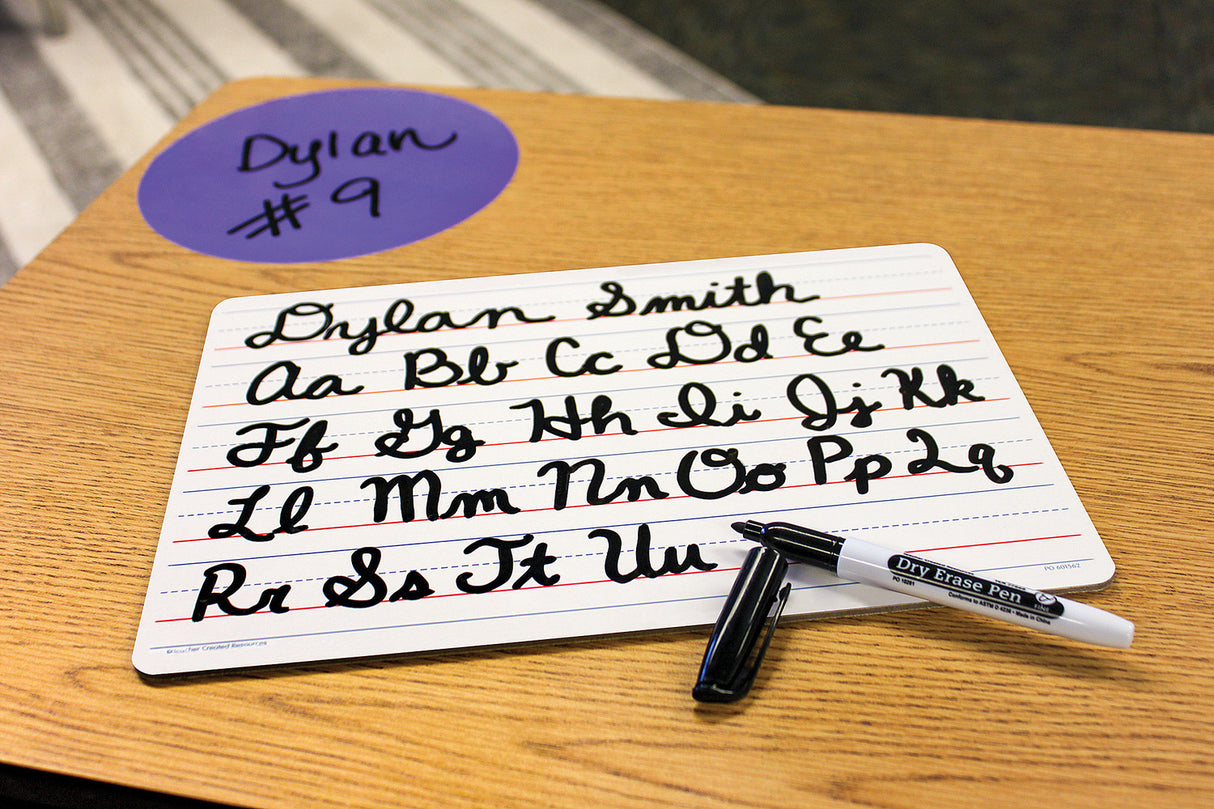 Dylan
#9
Dylan Smith
Aa Bb Cc Dd Ee
Ff Gg Hh Ii Jj Kk
Ll Mm Nn Oo Pp Qq
Rr Ss Tt Uu
PO 601562
©Teacher Created Resources
Dry Erase Pen
FINE
Conforms to ASTM D-4236 • Made in China